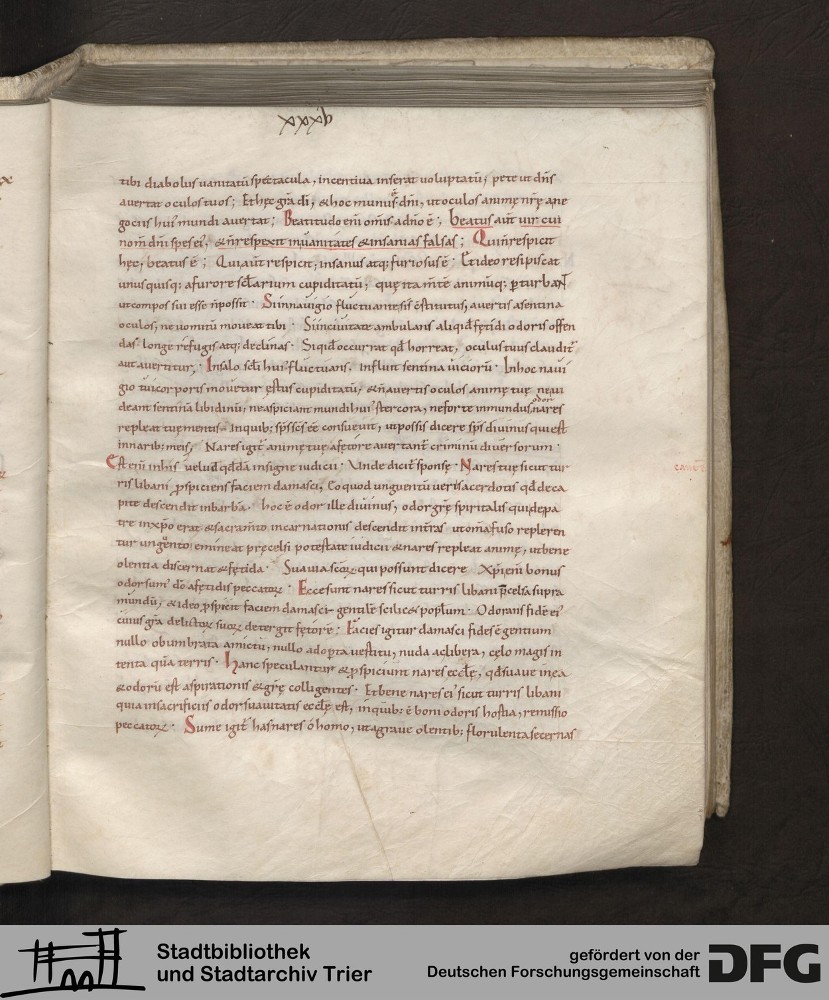 xxxiiij
tibi diabolus uanitatū spectacula, incentiua inserat uoluptatū, pete ut dn̄s
auertat oculos tuos; Et hęc gr̄a dī, & hoc munus ē dn̄i, ut oculos animę nr̄ę a ne
gociis hui' mundi auertat; Beatitudo enī om̄is a dn̄o ē; beatus aut̄ uir cui
nom̄ dn̄i spes ei', & n̄ respexit in uanitates & insanias falsas; Qui n̄ respicit
hęc, beatus ē; Qui aut̄ respicit, insanus atq; furiosus ē. Et ideo resipiscat
unusquisq; a furore sclarium cupiditatū, quę ita m̄te animūq; pturban̄t
ut compos sui esse n̄ possit. Si in nauigio fluctuante sis c̄stitutus, auertis a sentina
oculos, ne uomitū moueat tibi. Si in ciuitate ambulans aliqid fętidi odoris offen
das, longe refugis atq; declinas. Si qid occurrat qd horreat, oculus tuus claudit̄
aut auertitur. In salo scli hui' fluctuans, influit sentina uiciorū. In hoc naui
gio tui corporis mouetur ęstus cupiditatū, & n̄ auertis oculos animę tuę, ne aui
deant sentinā libidinū, ne aspiciant mundi hui' stercora, ne forte inmundus odor nares
repleat tuę mentis. In quib; sp̄s sc̄s ēē consueuit, ut possis dicere sp̄s diuinus qui est
in narib; meis. Nares igit̄ animę tuę a fętore auertant criminū diuersorum.
Est enī in his uelud qddā insigne iudicii. Unde dicit sponsę. Nares tuę sicut tur
ris libani pspiciens faciem damasci, Eo quod unguentū ueri sacerdotis qd de ca
pite descendit in barbā. hoc ē odor ille diuinus, odor gr̄ę spiritalis qui de pa
tre in xp̄o erat & sacram̄to incarnationis descendit in terras ut om̄ia fuso repleren
tur ungento, emineat pręcelsi potestate iudicii & nares repleat animę, ut bene
olentia discernat & fętida. Suauia sc̄oꝝ qui possunt dicere Xp̄i enī bonus
odor sum' dō a fętidis peccatoꝝ. Ecce sunt nares sicut turris libani p̄celsa supra
mundū, & ideo pspicit faciem damasci gentilē scilic& poplum. Odorans fidē ei'
cuius gr̄a delictoꝝ suoꝝ detergit fętorē; Facies igitur damasci fides ē gentium
nullo obumbrata amictu, nullo adopta uestitu, nuda ac libera, cęlo magis in
tenta quā terris. hanc speculantur & pspiciunt nares ecclę, qd suaue in ea
& odorū est aspirationis & gr̄ę colligentes. Et bene nares ei' sicut turris libani
quia in sacrificiis odor suauitatis ecclę est, in quib; ē boni odoris hostia, remissio
peccatoꝝ. Sume igit̄ has nares ó homo, ut a graue olentib; florulenta secernas
Stadtbibliothek
und Stadtarchiv Trier
gefördert von der
Deutschen Forschungsgemeinschaft
DFG